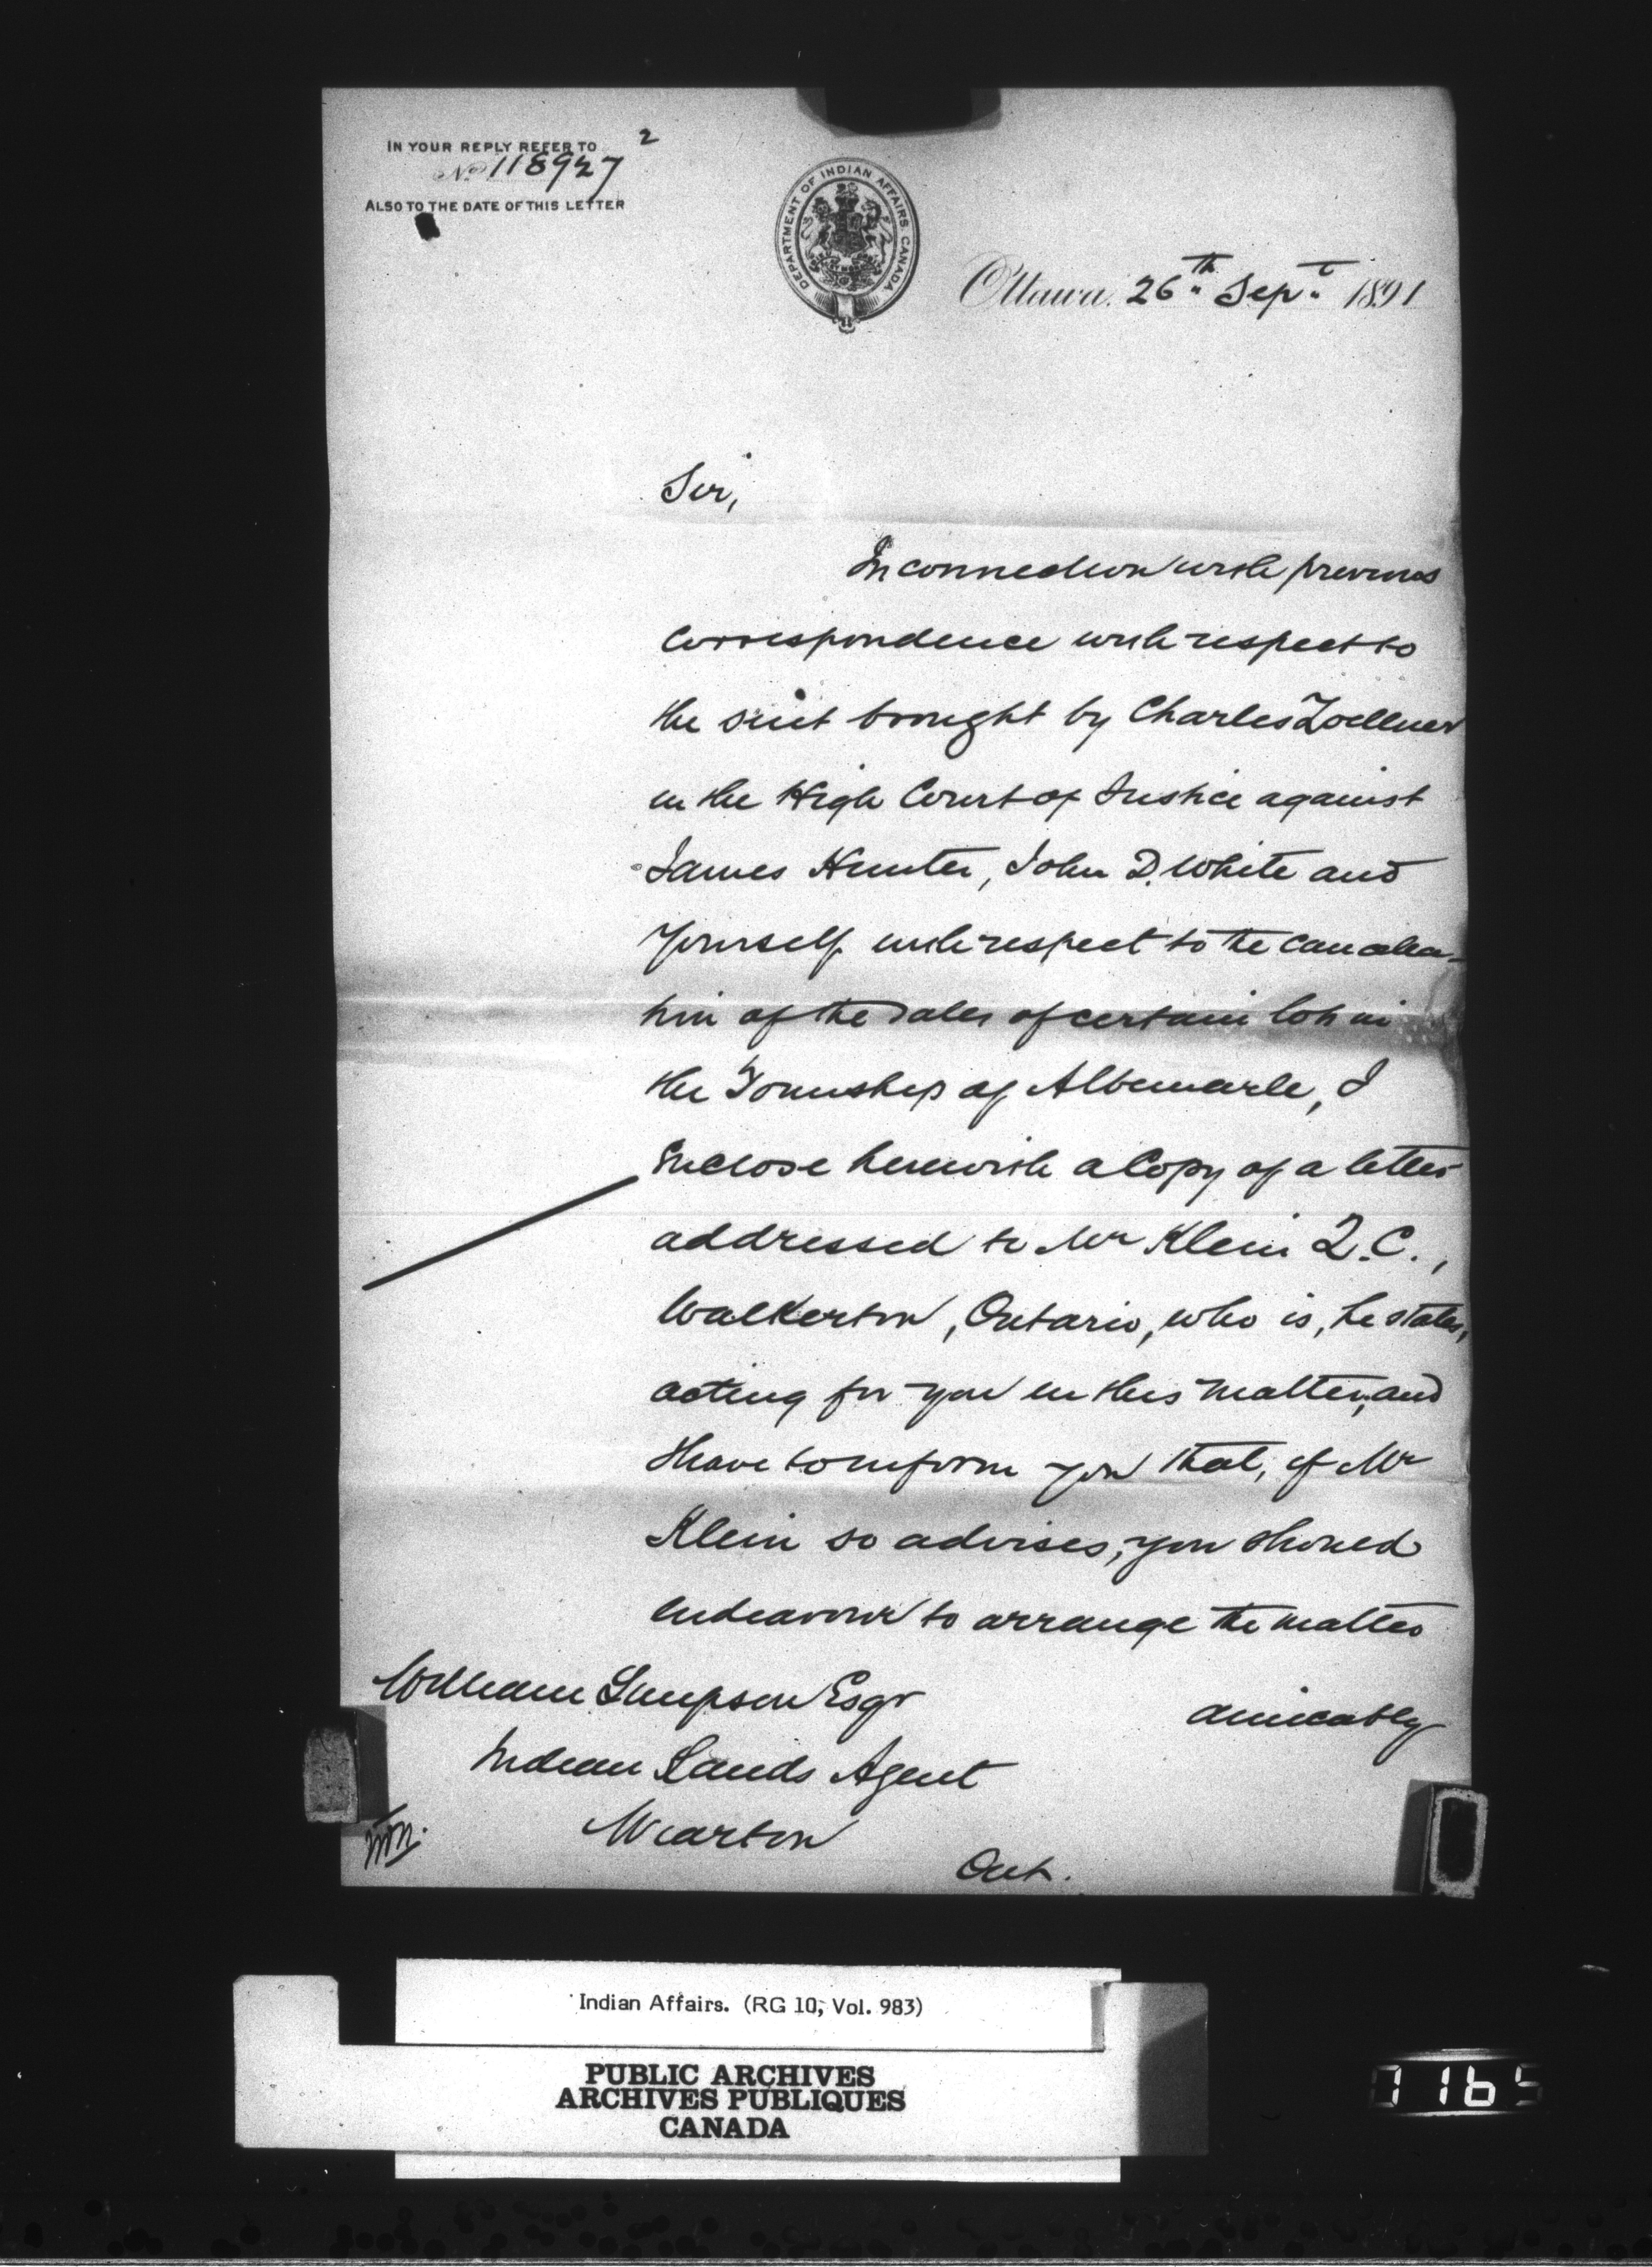 IN YOUR REPLY REFER TO
No 118927 2
ALSO TO THE DATE OF THIS LETTER
DEPARTMENT OF INDIAN AFFAIRS CANADA
Ottawa, 26th Sept 1891
Sir,
In connection with previous
correspondence with respect to
the suit brought by Charles Zoellner
in the High Court of Justice against
James Hunter, John D. White and
yourself with respect to the cancella-
tion of the sales of certain lots in
the Township of Albemarle, I
enclose herewith a copy of a letter
addressed to Mr Klein Q.C.,
Walkerton, Ontario, who is, he states,
acting for you in this matter, and
I have to inform you that, if Mr
Klein so advises, you should
endeavour to arrange the matter
amicably
William Simpson Esqr
Indian Lands Agent
Wiarton
Ont.
Indian Affairs. (RG 10, Vol. 983)
PUBLIC ARCHIVES
ARCHIVES PUBLIQUES
CANADA